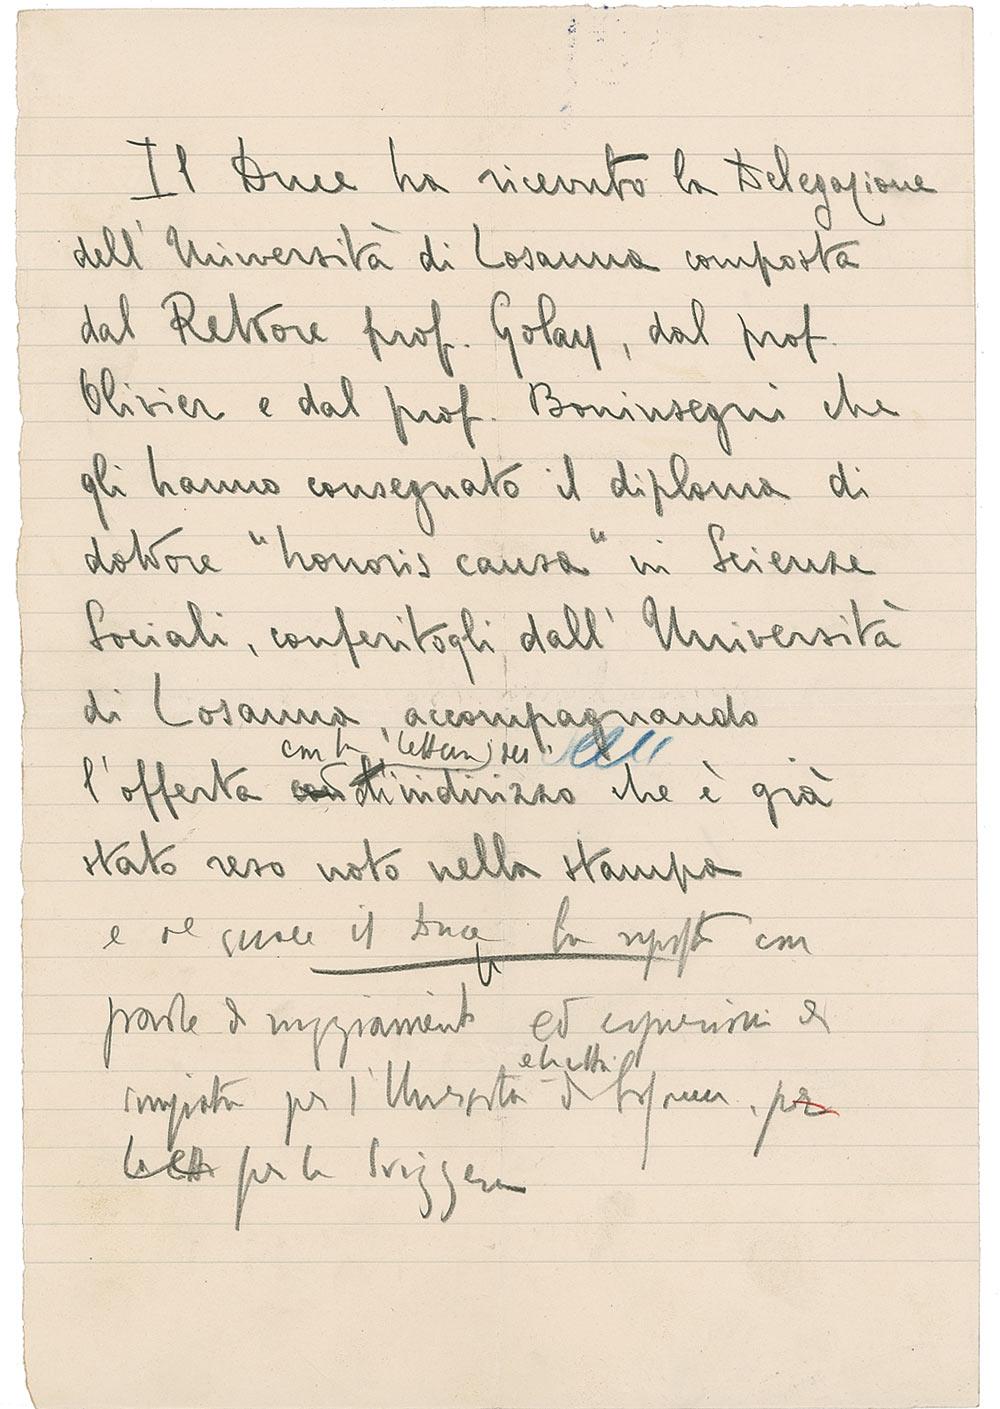 Il Duce ha ricevuto la Delegazione
dell'Università di Losanna composta
dal Rettore prof. Golay, dal prof.
Olivier e dal prof. Boninsegni che
gli hanno consegnato il diploma di
dottore "honoris causa" in Scienze
Sociali, conferitogli dall'Università
di Losanna, accompagnando
con la
l'offerta indirizzo che è già
stato reso noto nella stampa
e al quale il Duce ha risposto con
parole di ringraziamento ed espressioni di
simpatia per l'Università di Losanna, per
per la Svizzera